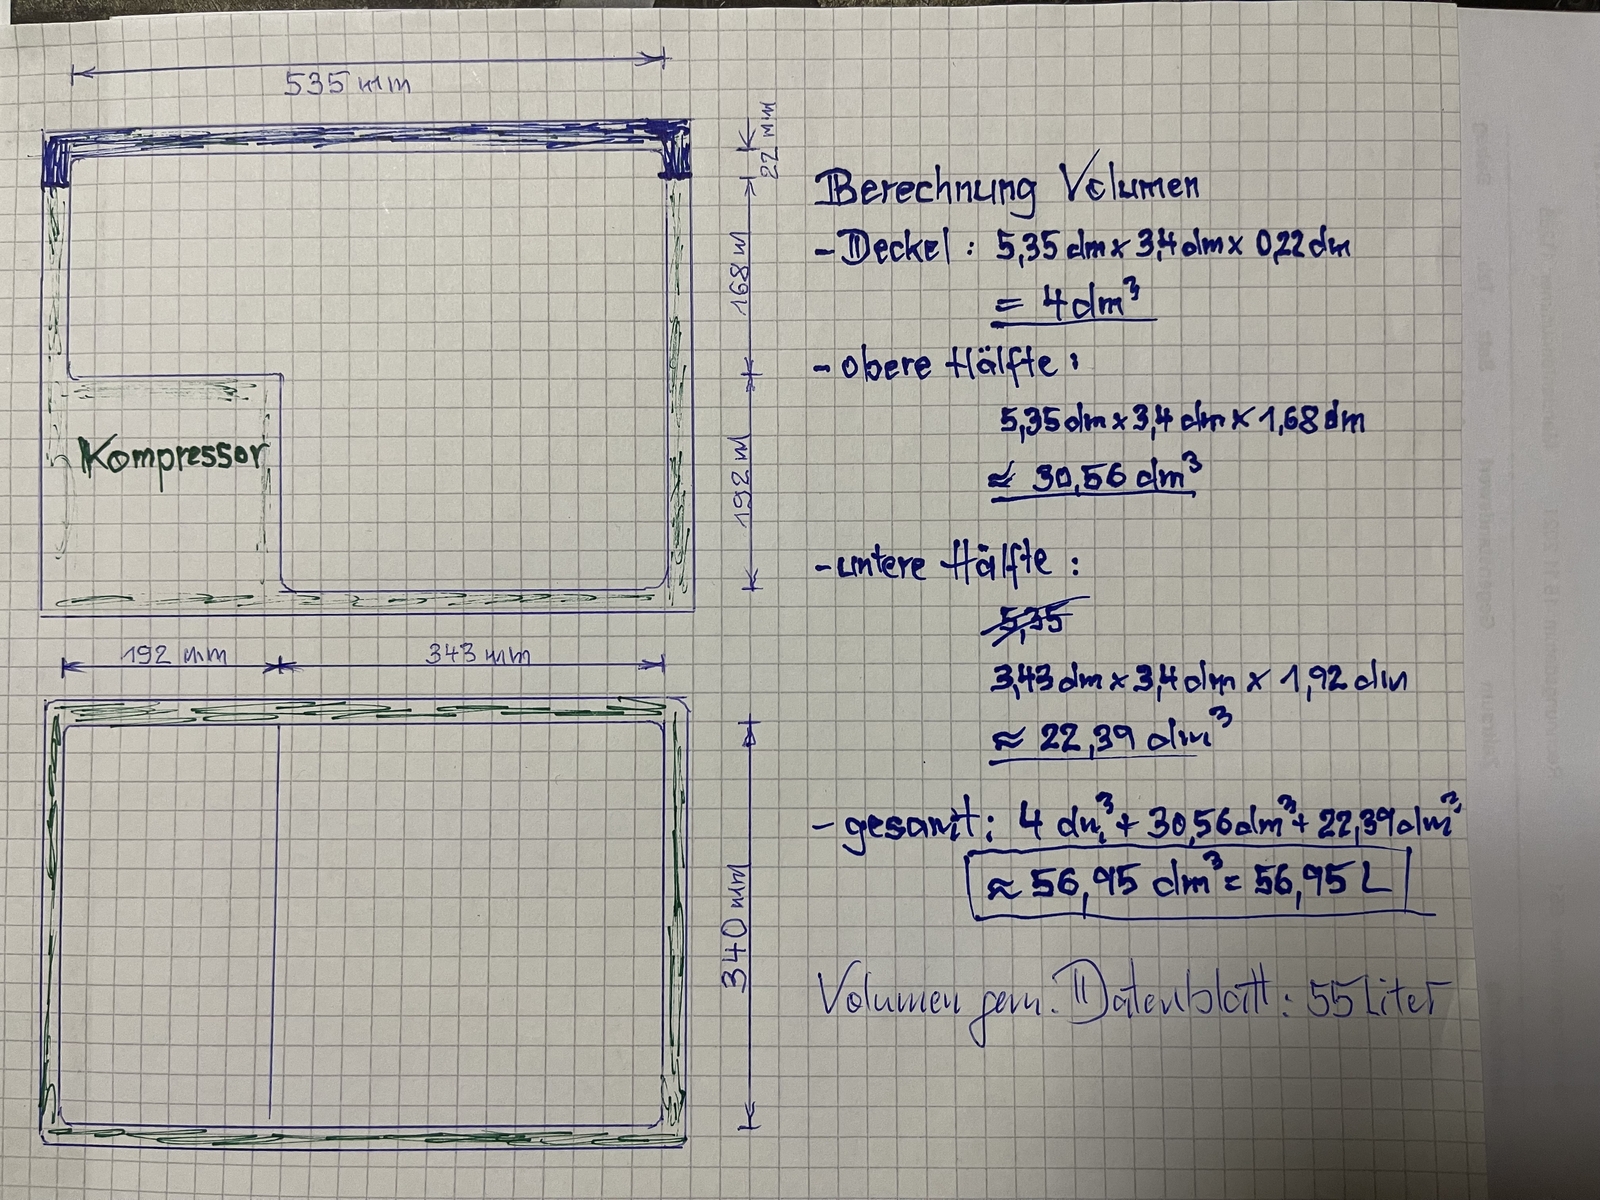 535 mm
22 mm
168 m
Kompressor
192 m
192 mm
343 mm
340 mm
Berechnung Volumen
- Deckel : 5,35 dm x 3,4 dm x 0,22 dm
= 4 dm³
- obere Hälfte :
5,35 dm x 3,4 dm x 1,68 dm
≈ 30,56 dm³
- untere Hälfte :
5,35
3,43 dm x 3,4 dm x 1,92 dm
≈ 22,39 dm³
- gesamt : 4 dm³ + 30,56 dm³ + 22,39 dm³
≈ 56,95 dm³ = 56,95 L
Volumen gem. Datenblatt : 55 Liter